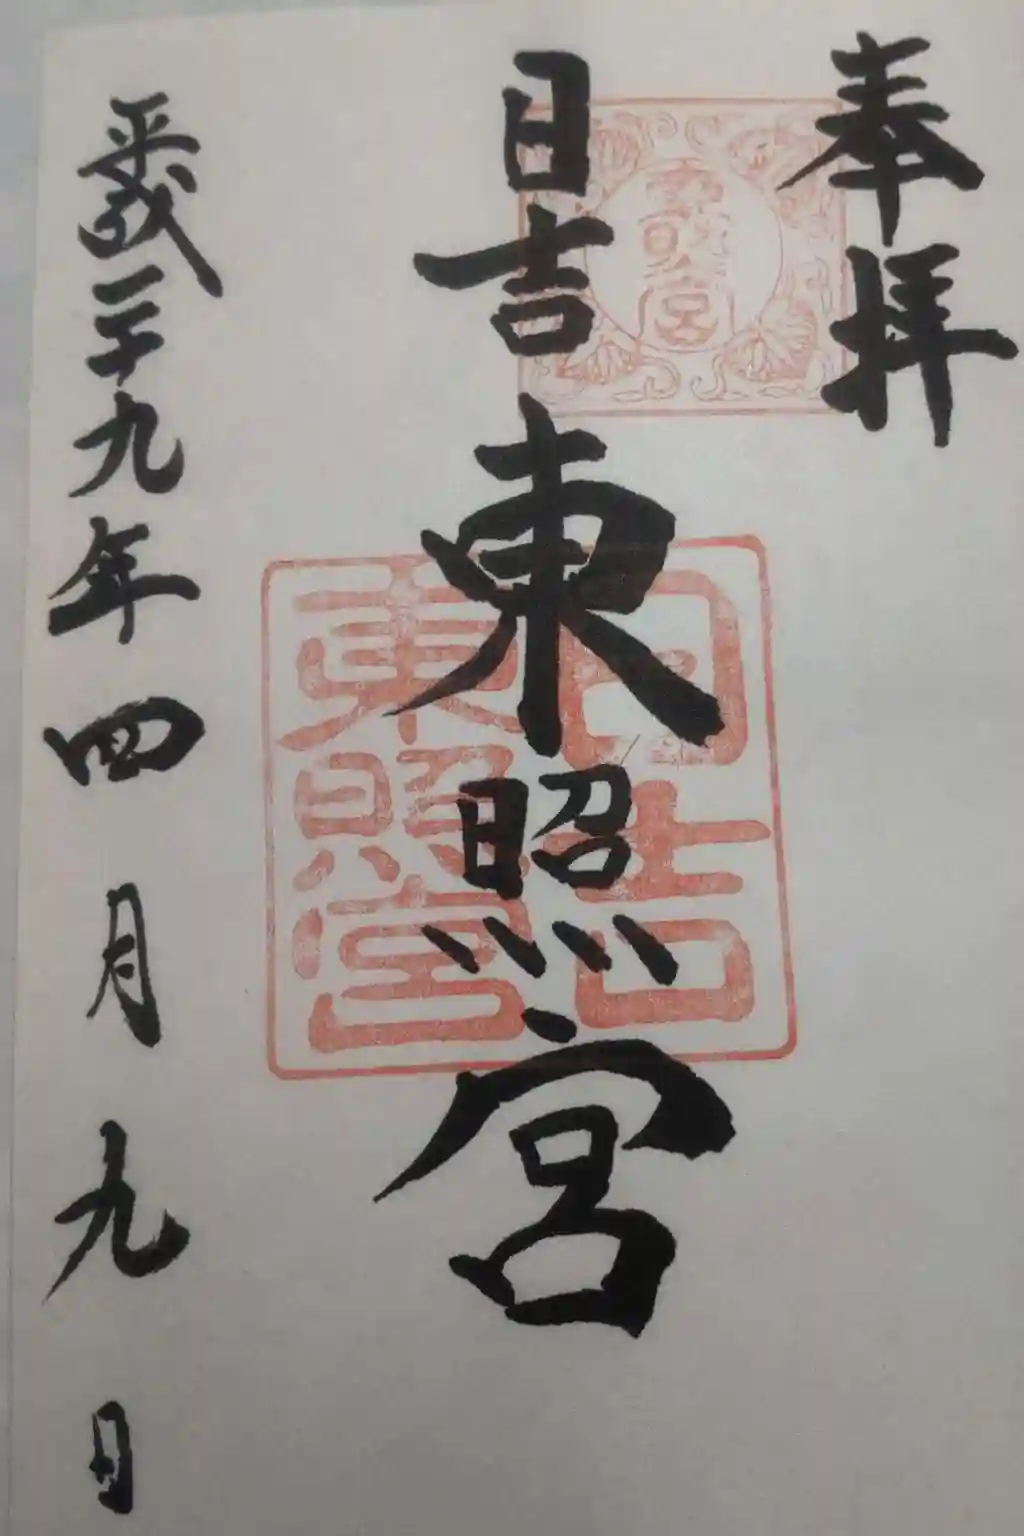 奉拝
日吉東照宮
日吉
東照宮
平成二十九年四月九日